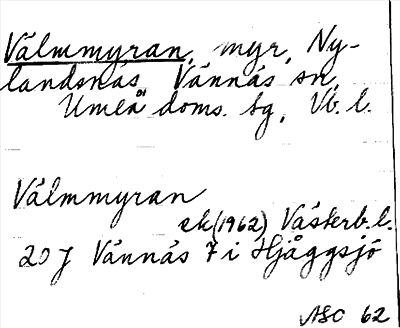 Välmmyran, myr, Ny-
landsnäs, Vännäs sn,
Umeå doms. sg, Vb. l.
Välmmyran
ek (1962) Västerb. l.
20 J Vännäs 7 i Hjåggsjö
ASC 62